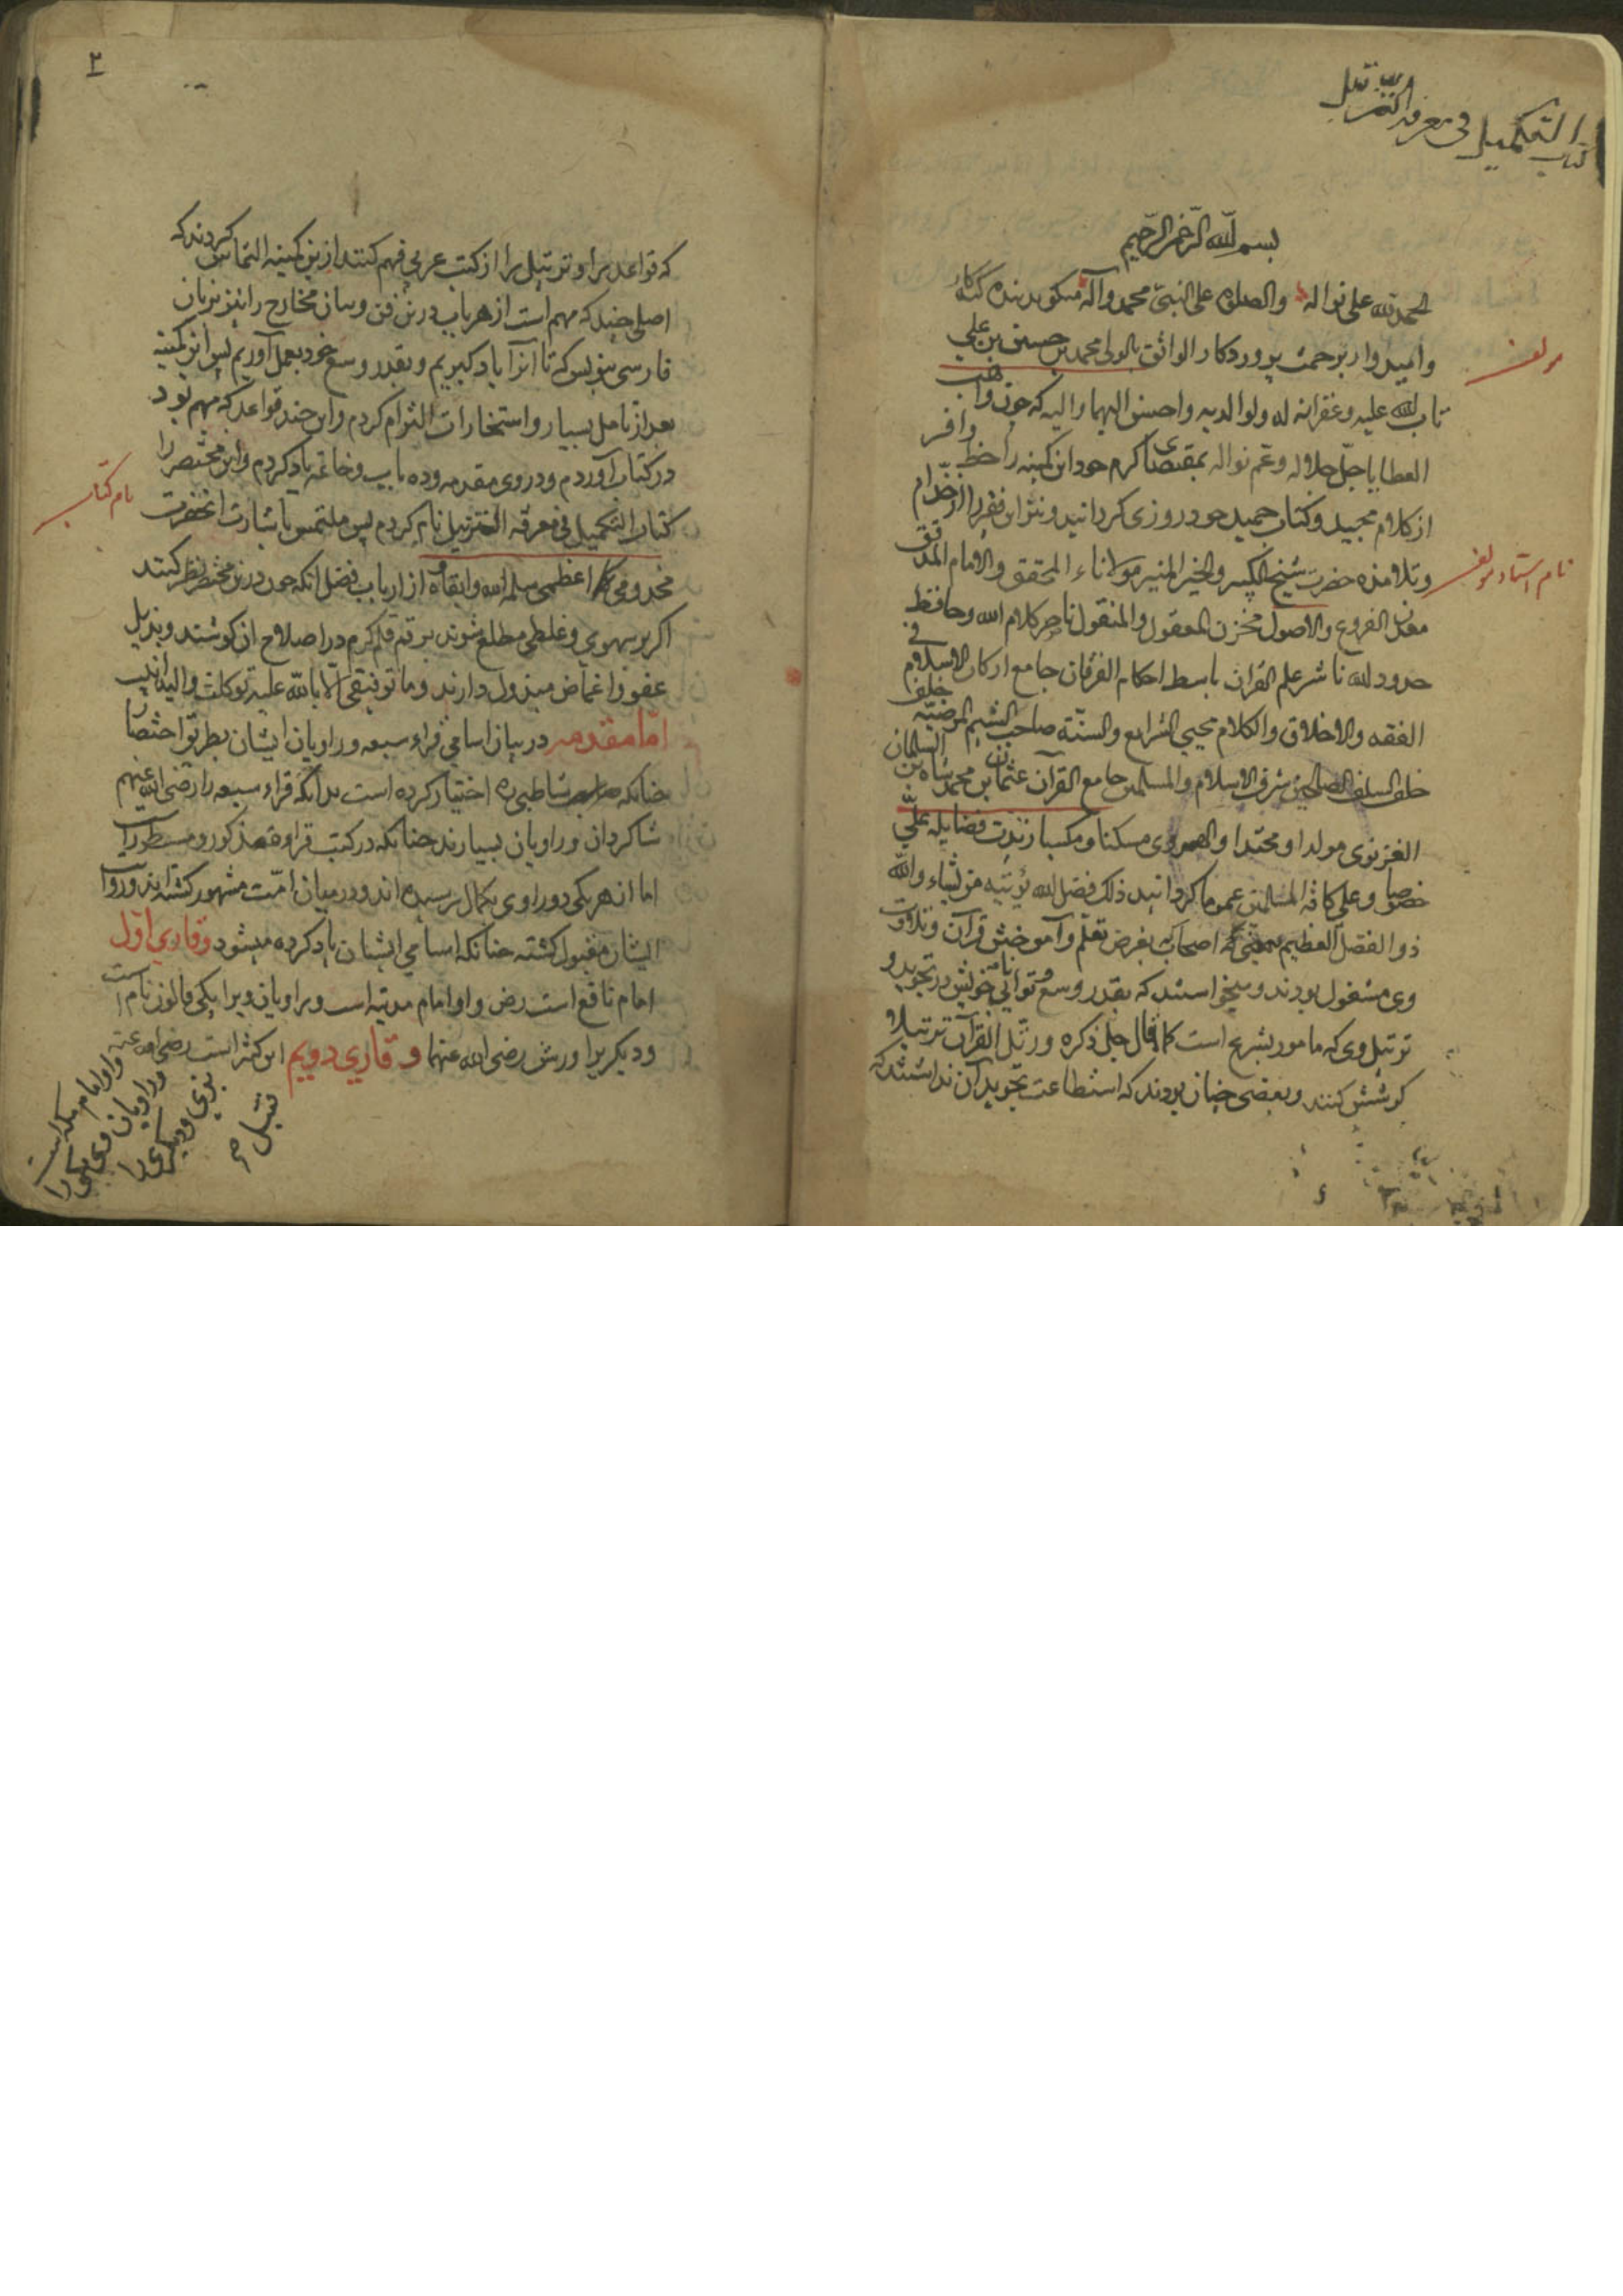 كتاب التكميل فی معرفة التنزیل
بسم الله الرحمن الرحیم
الحمد لله علی نواله والصلوه علی النبی محمد وآله میکوید بنده کنه کار
مولف
وامیدوار برحمت پروردکار الواثق بالولی محمد بن حسین بن علی
تاب الله علیه وغفرانه له ولوالدیه واحسن الیهما والیه که چون واهب
العطایا جل جلاله وعم نواله بمقتضای کرم خود این کمینه را حظ وافر
از کلام مجید وکتاب حمید خود روزی کردانید ونیز این فقیر را از خدام
وتلامذه حضرت شیخ الکبیر والخیر المنیر مولاناء المحقق والامام المدقق
نام استاد مولف
معدن الفروع والاصول مخزن المعقول والمنقول ناصر کلام الله وحافظ
حدود الله ناشر علم القران باسط احکام الفرقان جامع ارکان الاسلام فی
الفقه والاخلاق والکلام محیی الشرایع والسنة صاحب الشیم المرضیه خلف
خلف السلف الصالحین شرف الاسلام والمسلمین جامع القرآن عثمان بن محمد شاه بن
الغزنوی مولدا ومحتدا والهروی مسکنا ومکسبا زیدت فضایله علی
خصوصا وعلی کافة المسلمین عموما کردانید ذلک فضل الله یؤتیه من یشاء والله
ذو الفضل العظیم اصحاب بغرض تعلم وآموختن قرآن وتلاوت
وی مشغول بودند ومیخواستند که بقدر وسع وتوانایی خویش در تجوید و
ترتیل وی که مامور بشرع است کما قال جل ذکره ورتل القرآن ترتیلا
کوشش کنند وبعضی چنان بودند که استطاعت تجوید آن نداشتند که
۲
که قواعد برا وترتیل را از کتب عربی فهم کنند ازین کمینه التماس کردند که
اصلی چند که مهم است از هر باب درین فن وبیان مخارج را نیز بزبان
فارسی بنویس که تا آنرا یاد کیریم وبقدر وسع خود بعمل آوریم پس این کمینه
بعد از تامل بسیار واستخارات التزام کردم واین چند قواعد که مهم بود
در کتاب آوردم ودر وی مقدمه وده باب وخاتمه یاد کردم واین مختصر را
نام کتاب
کتاب التکمیل فی معرفة التنزیل نام کردم پس ملتمس باشارت انحضرت
مخدومی اعظمی سلمه الله وابقاه از ارباب فضل انکه چون درین مختصر نظر کنند
اکر بر سهوی وغلطی مطلع شوند برقم قلم کرم در اصلاح ان کوشند وبذیل
عفو واغماض مبذول دارند وما توفیقی الا بالله علیه توکلت والیه انیب
اما مقدمه در بیان اسامی قراء سبعه وراویان ایشان بطریق اختصار
چنانکه شاطبی ره اختیار کرده است بدانکه قراء سبعه را رضی الله عنهم
شاکردان وراویان بسیارند چنانکه در کتب قراءة مذکور ومسطورات
اما از هر یکی دو راوی بکمال رسیده اند ودر میان امت مشهور کشته اند وروایت
ایشان مقبول کشته چنانکه اسامی ایشان یاد کرده میشود وقاری اول
امام نافع است رض واو امام مدینه است وراویان ویرا یکی قالون نام است
ودیکریرا ورش رضی الله عنهما وقاری دویم ابن کثیر است رضی الله عنه
واو امام مکه است
وراویان وی یکی را
بزی ودیکری را
قنبل